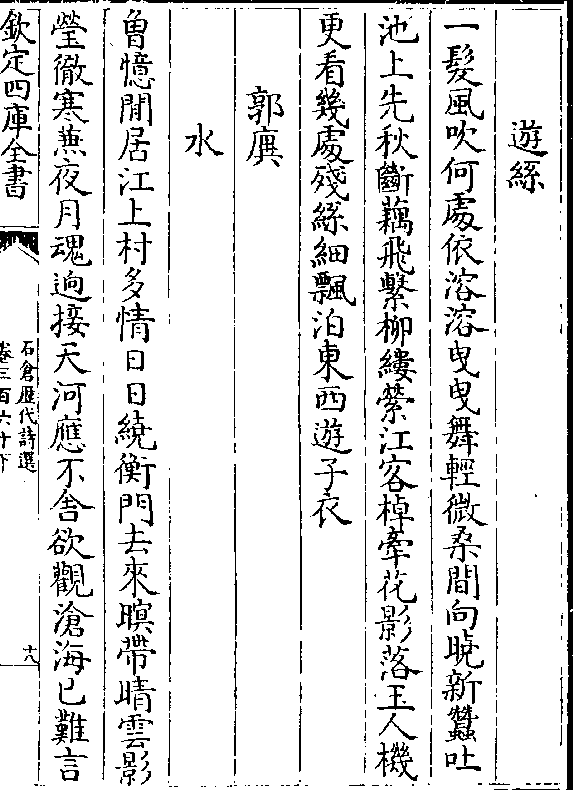 遊絲
一髮風吹何處依溶溶曳曳舞輕微桑間向晚新蠶吐
池上先秋斷藕飛繫柳縷縈江客棹牽花影落玉人機
更看幾處殘絲細飄泊東西遊子衣
郭㢲
水
曾憶閒居江上村多情日日繞衡門去來暝帶晴雲影
瑩徹寒兼夜月魂逈接天河應不舍欲觀滄海已難言
欽定四庫全書
石倉歷代詩選
卷三百六十下
十八